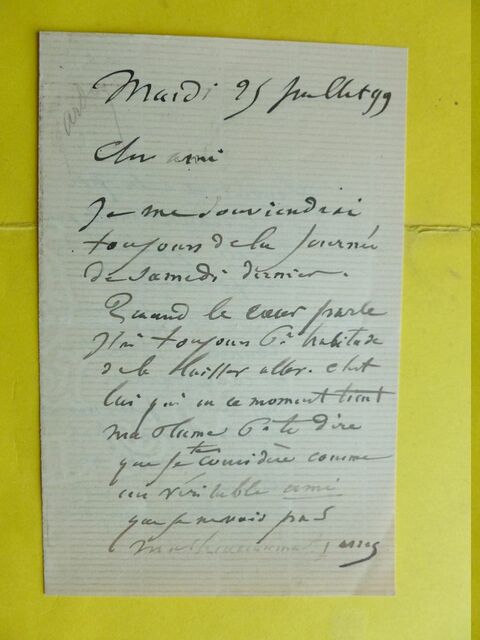 Mardi 25 juillet 99
Cher ami
Je me souviendrai
toujours de la journée
de samedi dernier.
Quand le cœur parle
j'ai toujours l'habitude
de le laisser aller. c'est
lui qui en ce moment tient
ma plume & te dire
que je te considère comme
un véritable ami
que je ne vois pas
malheureusement assez